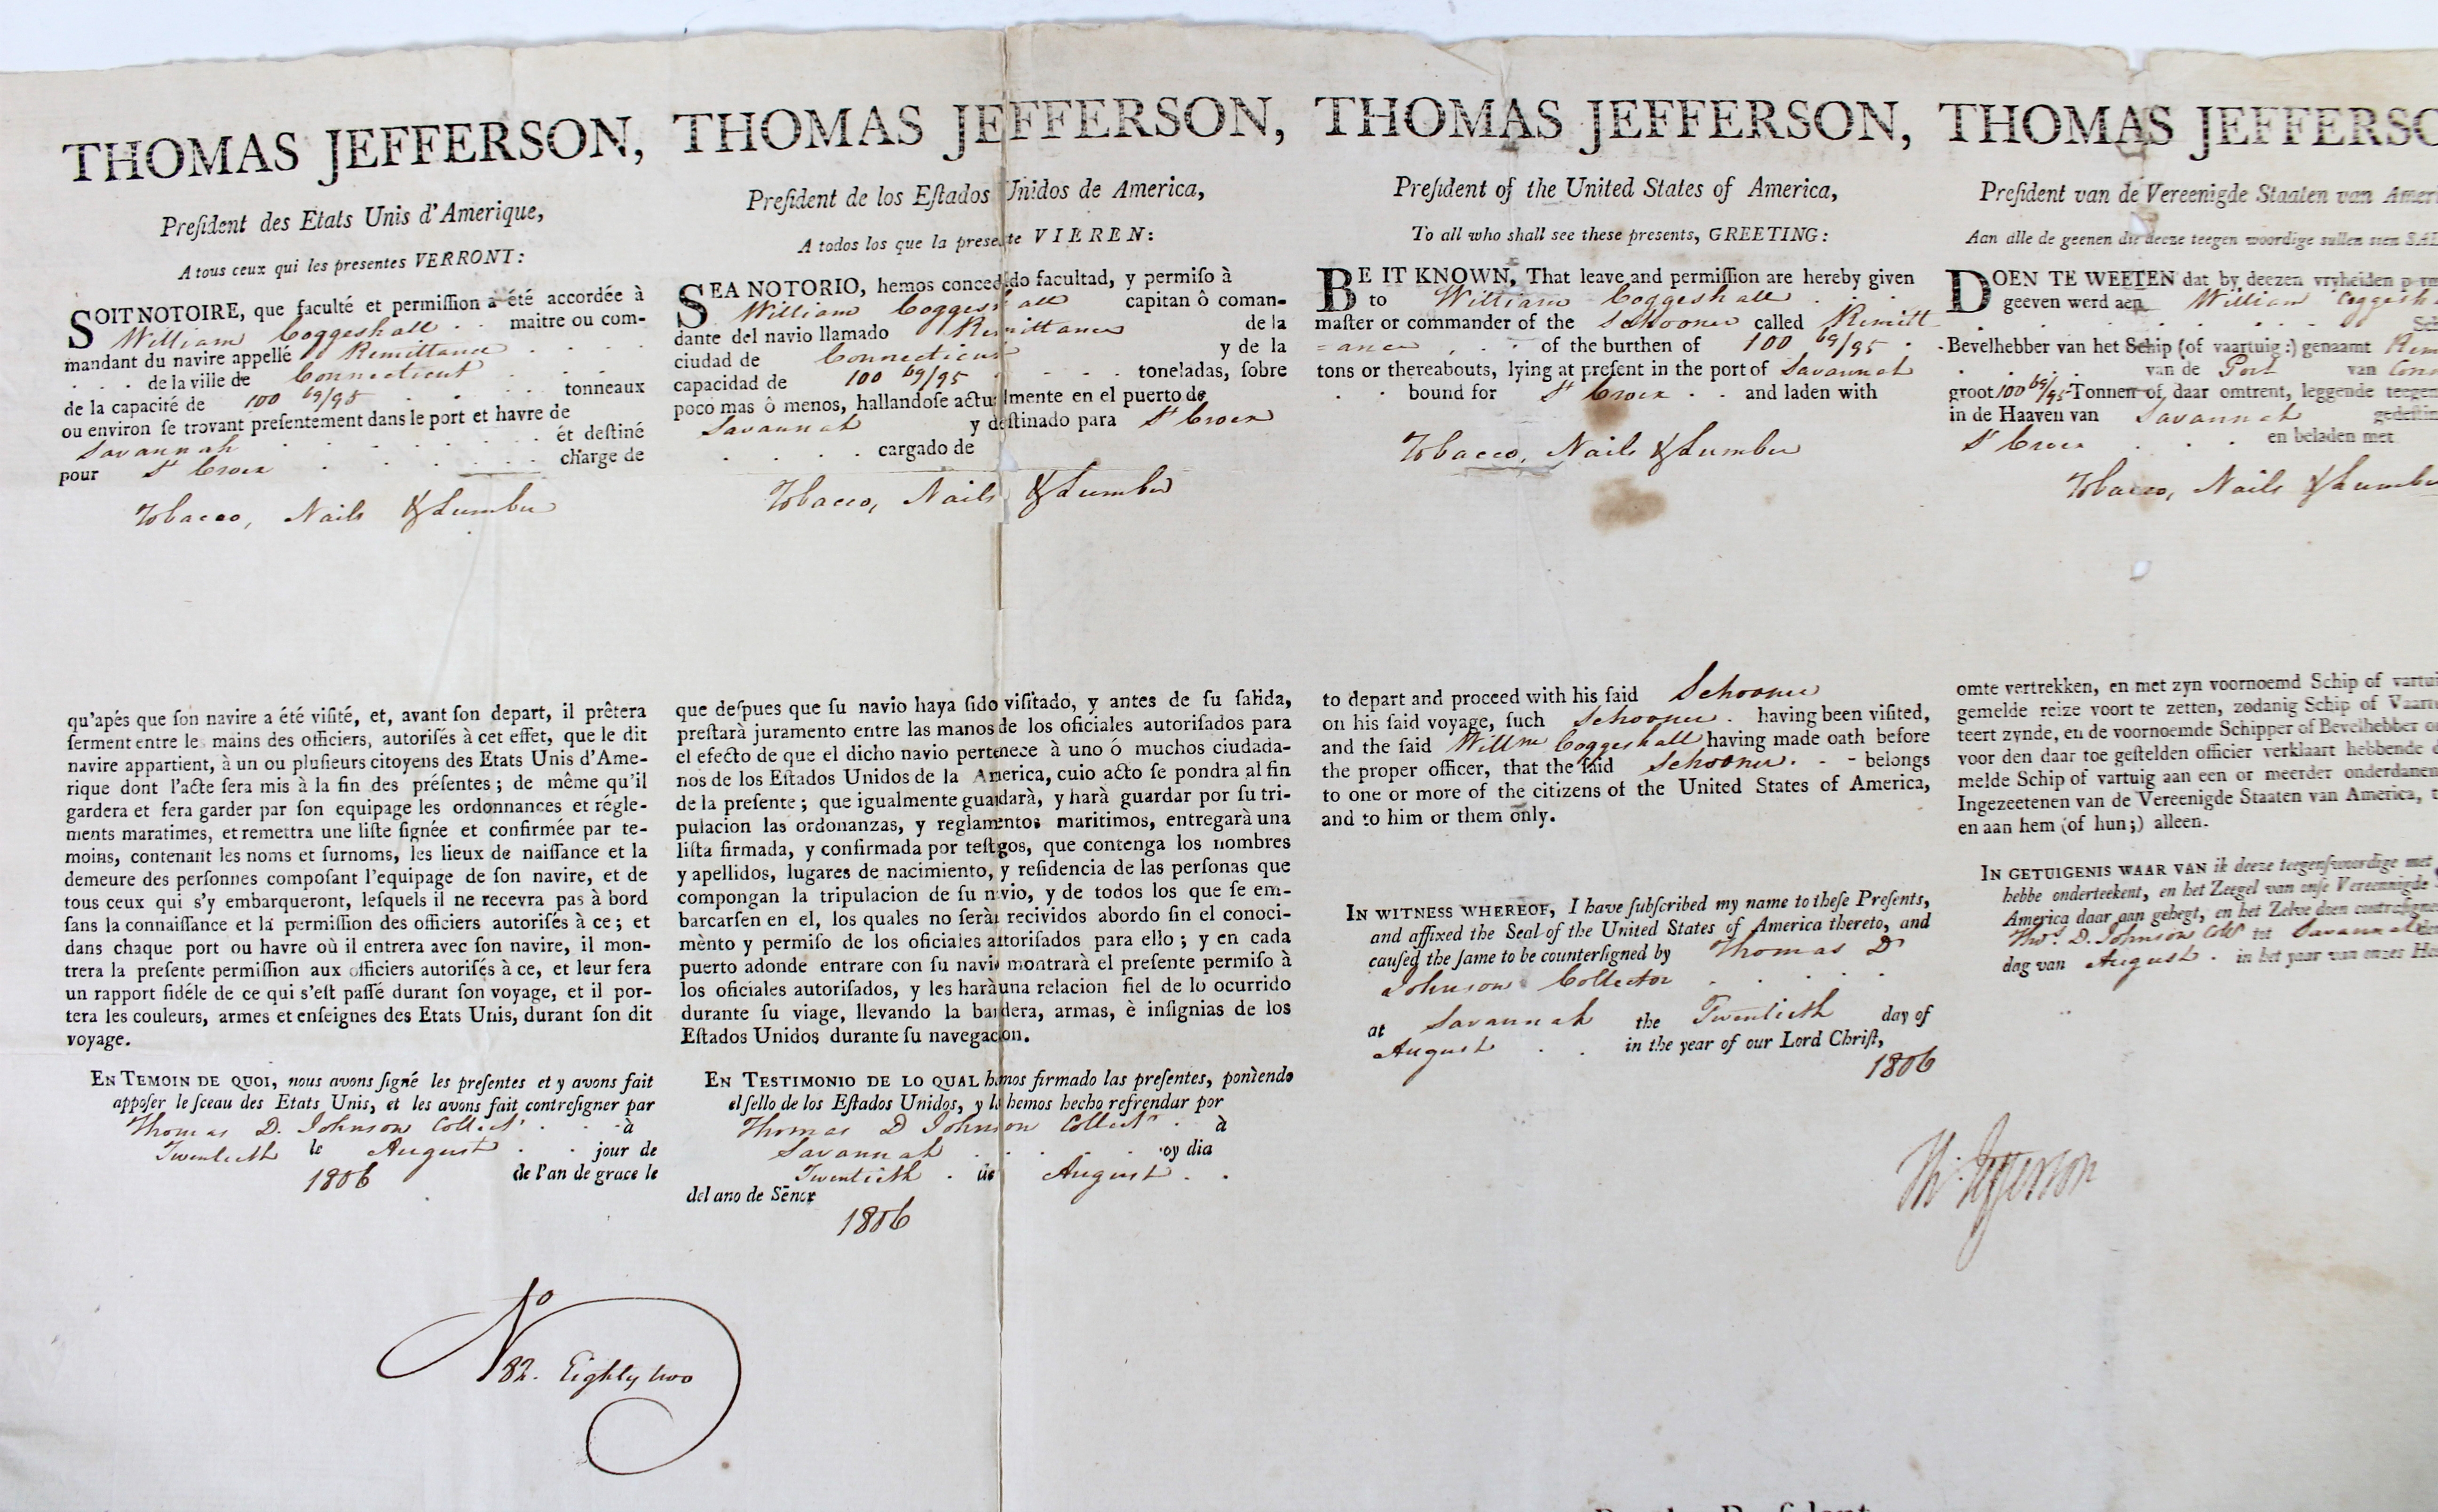 THOMAS JEFFERSON,
President des Etats Unis d'Amerique,
A tous ceux qui les presentes VERRONT:
SOIT NOTOIRE, que faculté et permiſſion a été accordée à
William Coggeshall . . maitre ou com-
mandant du navire appellé Remittance . . . .
. . . de la ville de Connecticut . . .
de la capacité de 100 69/95 . . . tonneaux
ou environ ſe trovant preſentement dans le port et havre de
Savannah . . . . . . et deſtiné
pour St Croix . . . . . . charge de
Tobacco, Nails & Lumber
qu'apés que ſon navire a été viſité, et, avant ſon depart, il prêtera
ſerment entre le mains des officiers, autoriſés à cet effet, que le dit
navire appartient, à un ou pluſieurs citoyens des Etats Unis d'Ame-
rique dont l'acte ſera mis à la fin des préſentes; de même qu'il
gardera et fera garder par ſon equipage les ordonnances et régle-
ments maratimes, et remettra une liſte ſignée et confirmée par te-
moins, contenant les noms et ſurnoms, les lieux de naiſſance et la
demeure des perſonnes compoſant l'equipage de ſon navire, et de
tous ceux qui s'y embarqueront, leſquels il ne recevra pas à bord
ſans la connaiſſance et la permiſſion des officiers autoriſés à ce; et
dans chaque port ou havre où il entrera avec ſon navire, il mon-
trera la preſente permiſſion aux officiers autoriſés à ce, et leur fera
un rapport fidéle de ce qui s'eſt paſſé durant ſon voyage, et il por-
tera les couleurs, armes et enſeignes des Etats Unis, durant ſon dit
voyage.
EN TEMOIN DE QUOI, nous avons ſigné les preſentes et y avons fait
appoſer le ſceau des Etats Unis, et les avons fait contreſigner par
Thomas D. Johnson Collectr . . à
Twentieth le August . . jour de
1806 de l'an de grace le
No 82. Eighty two
THOMAS JEFFERSON,
Preſident de los Eſtados Unidos de America,
A todos los que la presente VIEREN:
SEA NOTORIO, hemos concedido facultad, y permiſo à
William Coggeshall capitan ô coman-
dante del navio llamado Remittance de la
ciudad de Connecticut y de la
capacidad de 100 69/95 . . . . toneladas, ſobre
poco mas ô menos, hallandoſe actualmente en el puerto de
Savannah y deſtinado para St Croix
. . . . cargado de
Tobacco, Nails & Lumber
que deſpues que ſu navio haya ſido viſitado, y antes de ſu ſalida,
preſtarà juramento entre las manos de los oficiales autoriſados para
el efecto de que el dicho navio pertenece à uno ó muchos ciudada-
nos de los Eſtados Unidos de la America, cuio acto ſe pondra al fin
de la preſente; que igualmente guardarà, y harà guardar por ſu tri-
pulacion las ordonanzas, y reglamentos maritimos, entregarà una
liſta firmada, y confirmada por teſtigos, que contenga los nombres
y apellidos, lugares de nacimiento, y reſidencia de las perſonas que
compongan la tripulacion de ſu navio, y de todos los que ſe em-
barcarſen en el, los quales no ſeràn recividos abordo ſin el conoci-
mènto y permiſo de los oficiales autoriſados para ello; y en cada
puerto adonde entrare con ſu navio montrarà el preſente permiſo à
los oficiales autoriſados, y les harà una relacion fiel de lo ocurrido
durante ſu viage, llevando la bandera, armas, è inſignias de los
Eſtados Unidos durante ſu navegacion.
EN TESTIMONIO DE LO QUAL hemos firmado las preſentes, poniendo
el ſello de los Eſtados Unidos, y lo hemos hecho refrendar por
Thomas D Johnson Collectr . à
Savannah . . . . oy dia
Twentieth . de August . .
del ano de Sēnor
1806
THOMAS JEFFERSON,
Preſident of the United States of America,
To all who shall see these presents, GREETING:
BE IT KNOWN, That leave and permiſſion are hereby given
to William Coggeshall . . .
maſter or commander of the Schooner called Remitt
=ance , . . of the burthen of 100 69/95 .
tons or thereabouts, lying at preſent in the port of Savannah
. . bound for St Croix . . and laden with
Tobacco, Nails & Lumber
to depart and proceed with his ſaid Schooner
on his ſaid voyage, ſuch Schooner . having been viſited,
and the ſaid Willm Coggeshall having made oath before
the proper officer, that the ſaid Schooner . - - belongs
to one or more of the citizens of the United States of America,
and to him or them only.
IN WITNESS WHEREOF, I have ſubſcribed my name to theſe Preſents,
and affixed the Seal of the United States of America thereto, and
cauſed the ſame to be counterſigned by Thomas D
Johnson Collector . . . .
at Savannah the Twentieth day of
August . . in the year of our Lord Chriſt,
1806
Th: Jefferson
THOMAS JEFFERSO
Preſident van de Vereenigde Staaten van Amer
Aan alle de geenen die deeze teegen woordige sullen sien SAL
DOEN TE WEETEN dat by deezen vryheiden perm
geeven werd aen William Coggesh
. . . . . . . Sch
Bevelhebber van het Schip (of vaartuig:) genaamt Rem
. . . van de Port van Conn
groot 100 69/95 Tonnen of daar omtrent, leggende teegen
in de Haaven van Savannah gedeſtin
St Croix . . . en beladen met
Tobacco, Nails & Lumbe
omte vertrekken, en met zyn voornoemd Schip of vartui
gemelde reize voort te zetten, zodanig Schip of Vaart
teert zynde, en de voornoemde Schipper of Bevelhebber o
voor den daar toe geſtelden officier verklaart hebbende d
melde Schip of vartuig aan een or meerder onderdanen
Ingezeetenen van de Vereenigde Staaten van America, t
en aan hem (of hun;) alleen.
IN GETUIGENIS WAAR VAN ik deeze teegenſwoordige met
hebbe onderteekent, en het Zeegel van onſe Vereennigde
America daar aan gehegt, en het Zelve doen contreſigne
Thos. D. Johnson Collr tot Savannah den
dag van August . in het yaar van onzes He